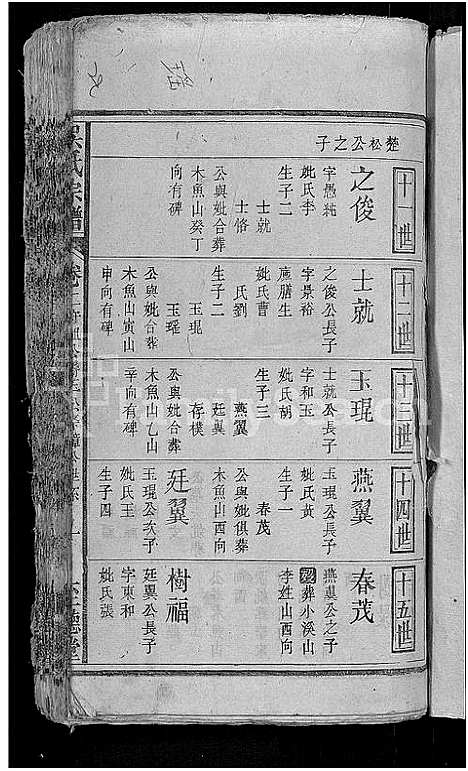 楚松公之子
十一世
之俊
字愚純
妣氏李
生子二
士就
士恪
公與妣合葬
木魚山癸丁
向有碑
十二世
士就
之俊公長子
字景裕
庠膳生
妣氏曹
氏劉
生子二
玉琨
玉瑤
公與妣合葬
木魚山寅山
申向有碑
十三世
玉琨
士就公長子
字和玉
妣氏胡
生子三
燕翼
廷翼
存樸
公與妣合葬
木魚山乙山
辛向有碑
十四世
燕翼
玉琨公長子
妣氏黃
生子一
春茂
公與妣俱葬
木魚山西向
廷翼
玉琨公次子
妣氏王
生子四
十五世
春茂
燕翼公之子
歿葬小溪山
李姓山西向
樹福
廷翼公長子
字東和
妣氏張
吳氏宗譜
卷二